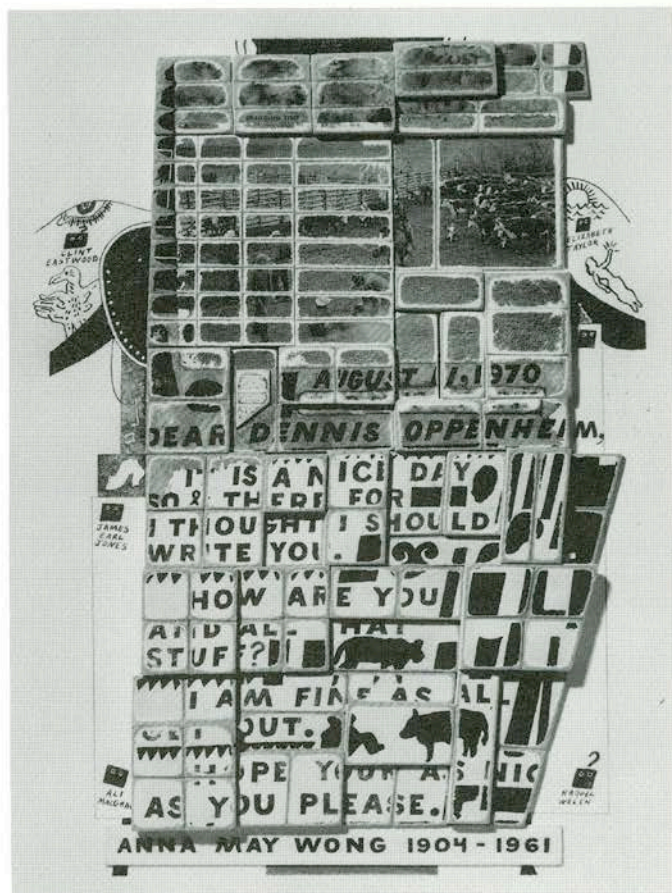 CLINT
EASTWOOD
ELIZABETH
TAYLOR
AUGUST 11, 1970
DEAR DENNIS OPPENHEIM,
IT IS A NICE DAY
SO & THERE FOR
I THOUGHT I SHOULD
WRITE YOU.
HOW ARE YOU
AND ALL THAT
STUFF?
I AM FINE AS ALL
GET OUT.
HOPE YOUR AS NIC
AS YOU PLEASE.
JAMES
EARL
JONES
ALI
?
RAQUEL
WELCH
ANNA MAY WONG 1904-1961